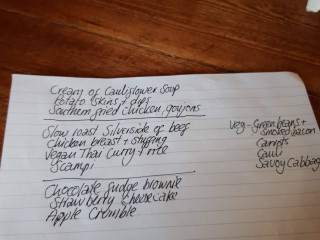 Cream of Cauliflower Soup
Potato skins + dips
Southern fried chicken goujons
Slow roast Silverside of beef
Chicken breast + stuffing
Vegan Thai Curry + rice
Scampi
Chocolate fudge brownie
Strawberry cheesecake
Apple Crumble
Veg - Green beans +
smoked bacon
Carrots
Cauli
Savoy Cabbag